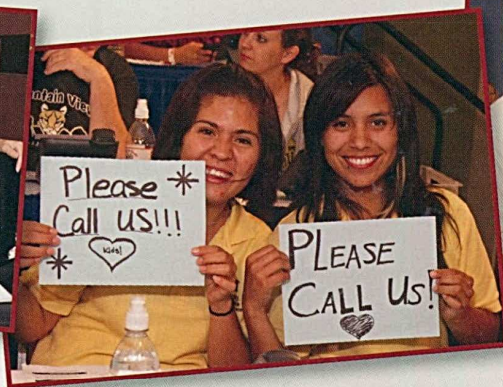 ntain View
Please
Call US!!!
kids!
PLEASE
CALL Us!